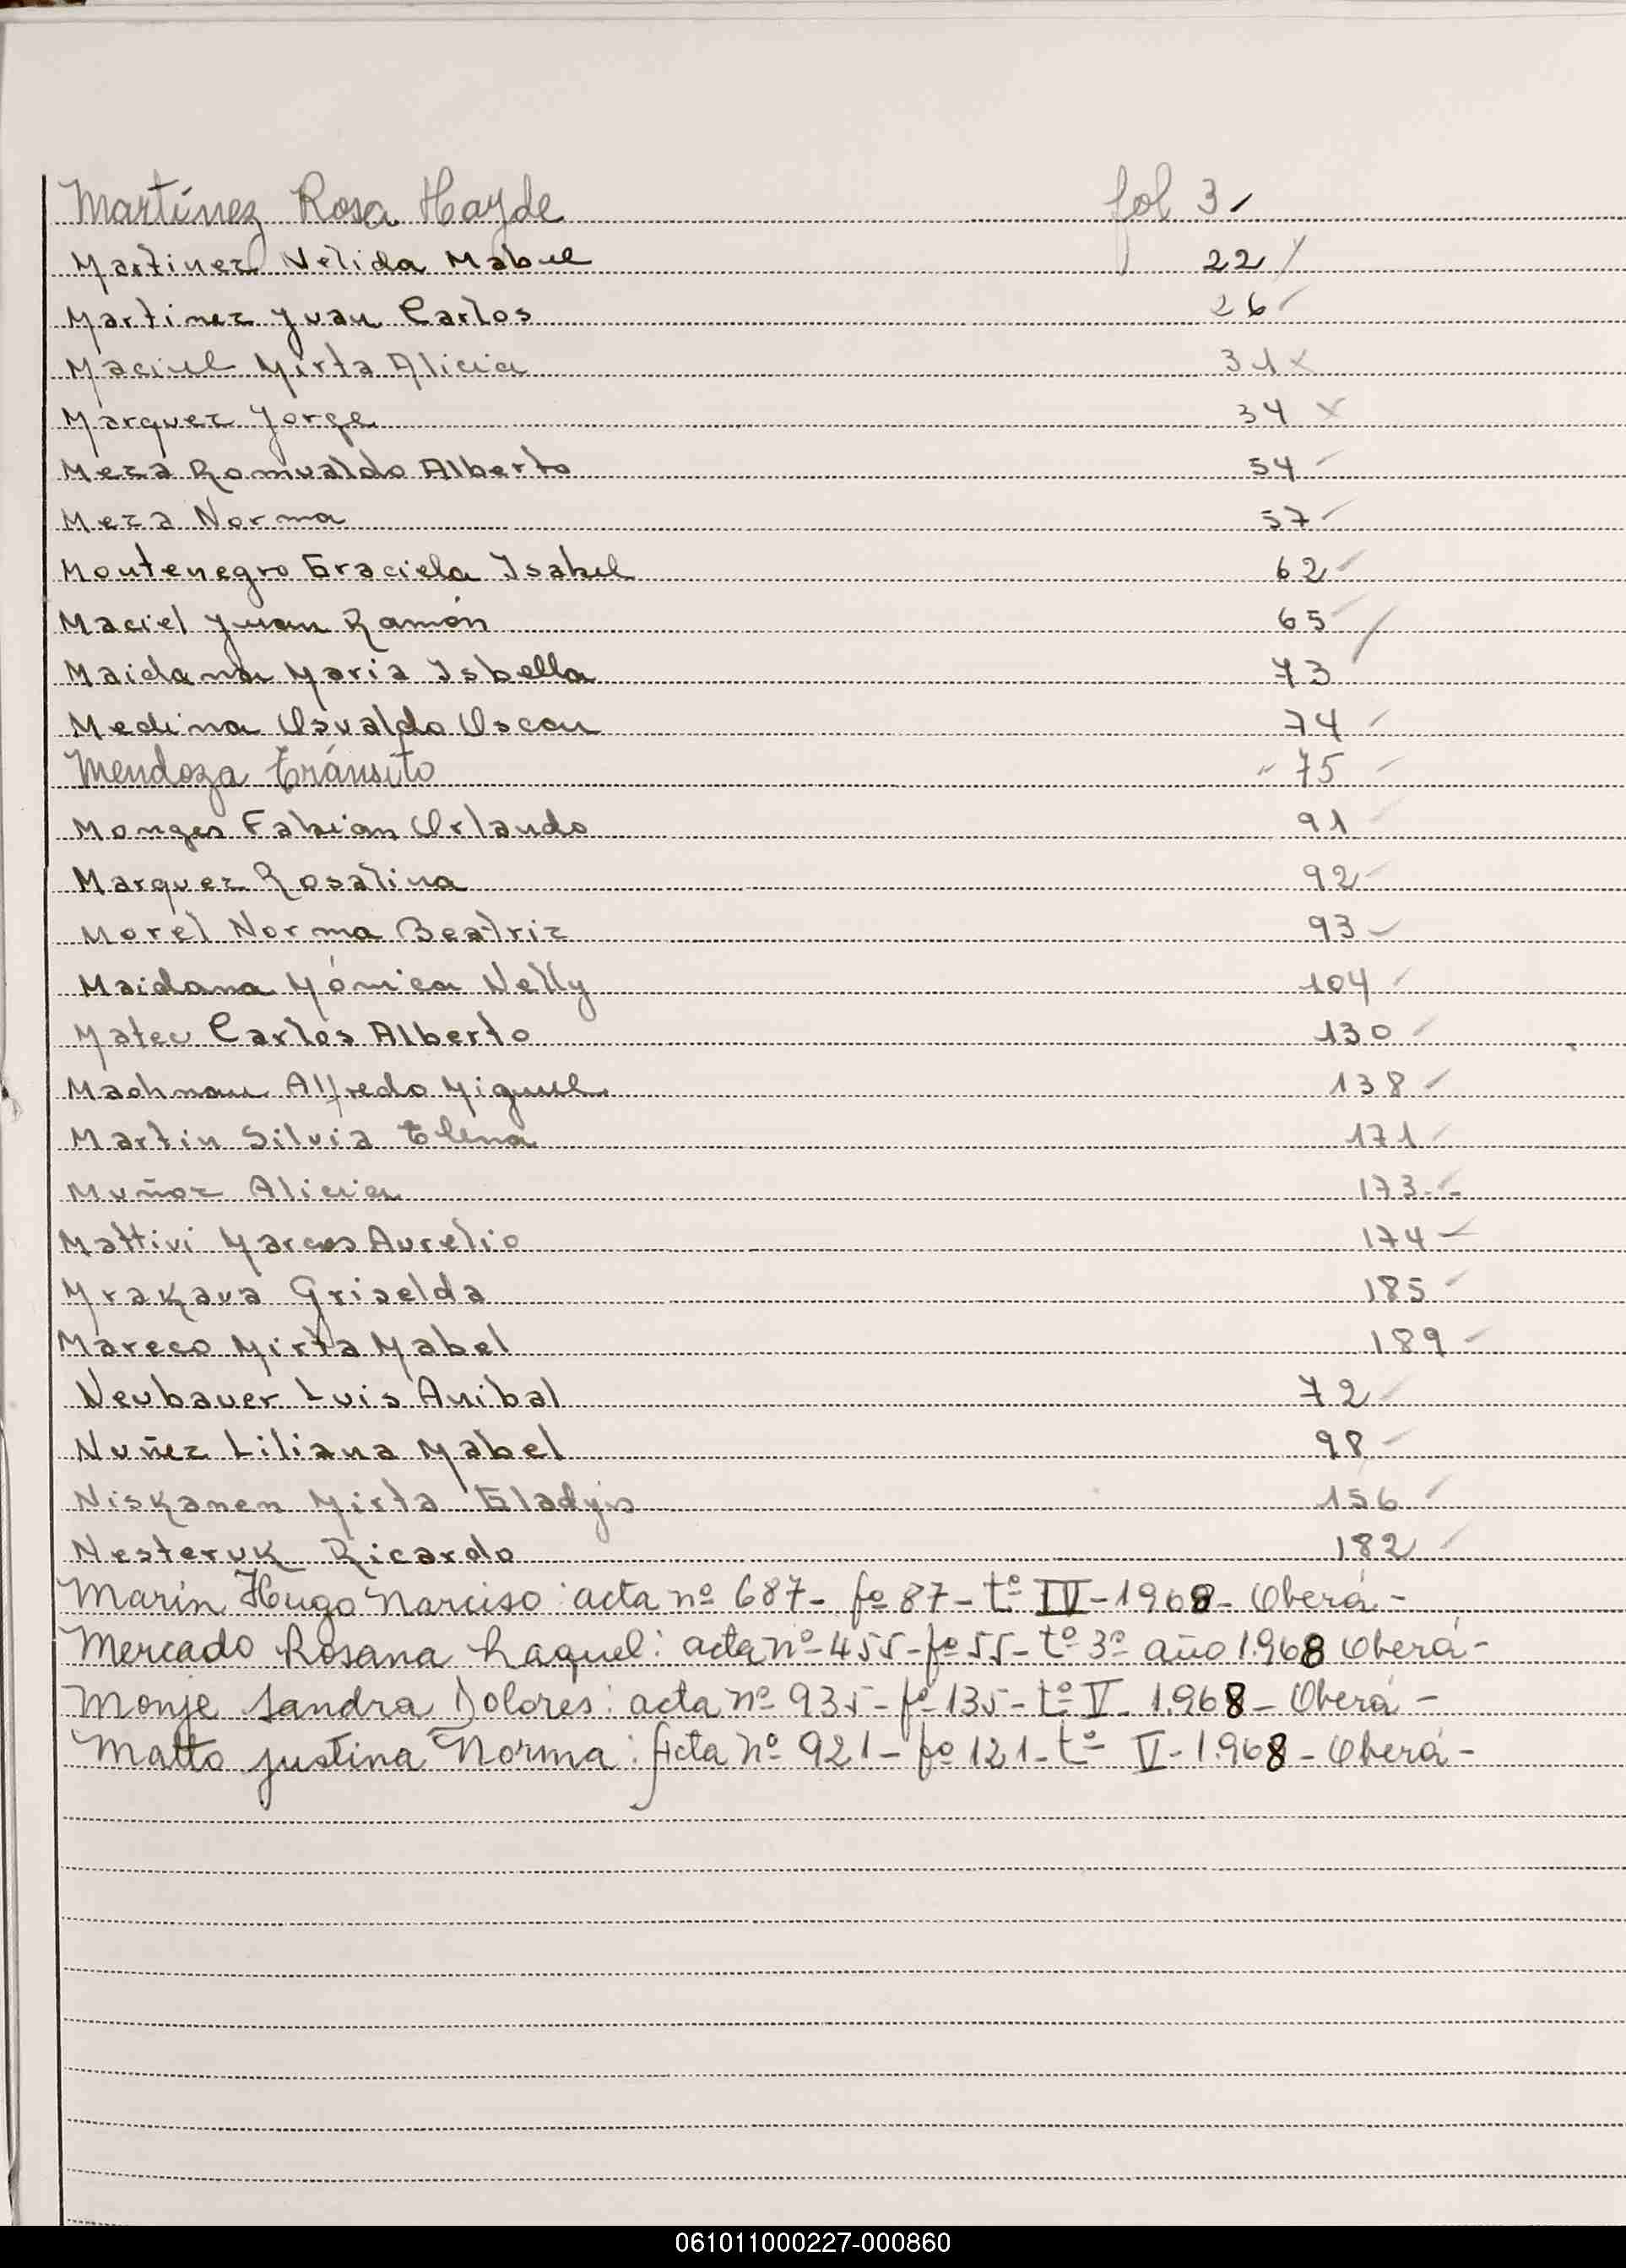 Martínez Rosa Hayde fol 3
Martinez Nelida Mabel 22
Martinez Juan Carlos 26
Maciel Mirta Alicia 31 x
Marquez Jorge 34 x
Meza Romualdo Alberto 54
Meza Norma 57
Montenegro Graciela Isabel 62
Maciel Juan Ramón 65
Maidana Maria Isbella 73
Medina Osvaldo Oscar 74
Mendoza Tránsito " 75
Monges Fabian Orlando 91
Marquez Rosalina 92
Morel Norma Beatriz 93
Maidana Mónica Nelly 104
Mateu Carlos Alberto 130
Alfredo Miguel 138
Martin Silvia Elena 171
Muñoz Alicia 173
Mattivi Marcos Aurelio 174
Mrakava Griselda 185
Mareco Mirta Mabel 189
Neubauer Luis Anibal 72
Nuñez Liliana Mabel 98
Niskanen Mirta Gladys 156
Nesteruk Ricardo 182
Marin Hugo Narciso: acta nº 687- fº 87- tº IV-1968- Oberá-
Mercado Rosana Raquel: acta nº-455-fº 55- tº 3º año 1.968 Oberá-
Monje Sandra Dolores: acta nº 935- fº 135- tº V- 1.968- Oberá-
Matto Justina Norma: Acta nº 921- fº 121- tº V- 1.968- Oberá-
061011000227-000860